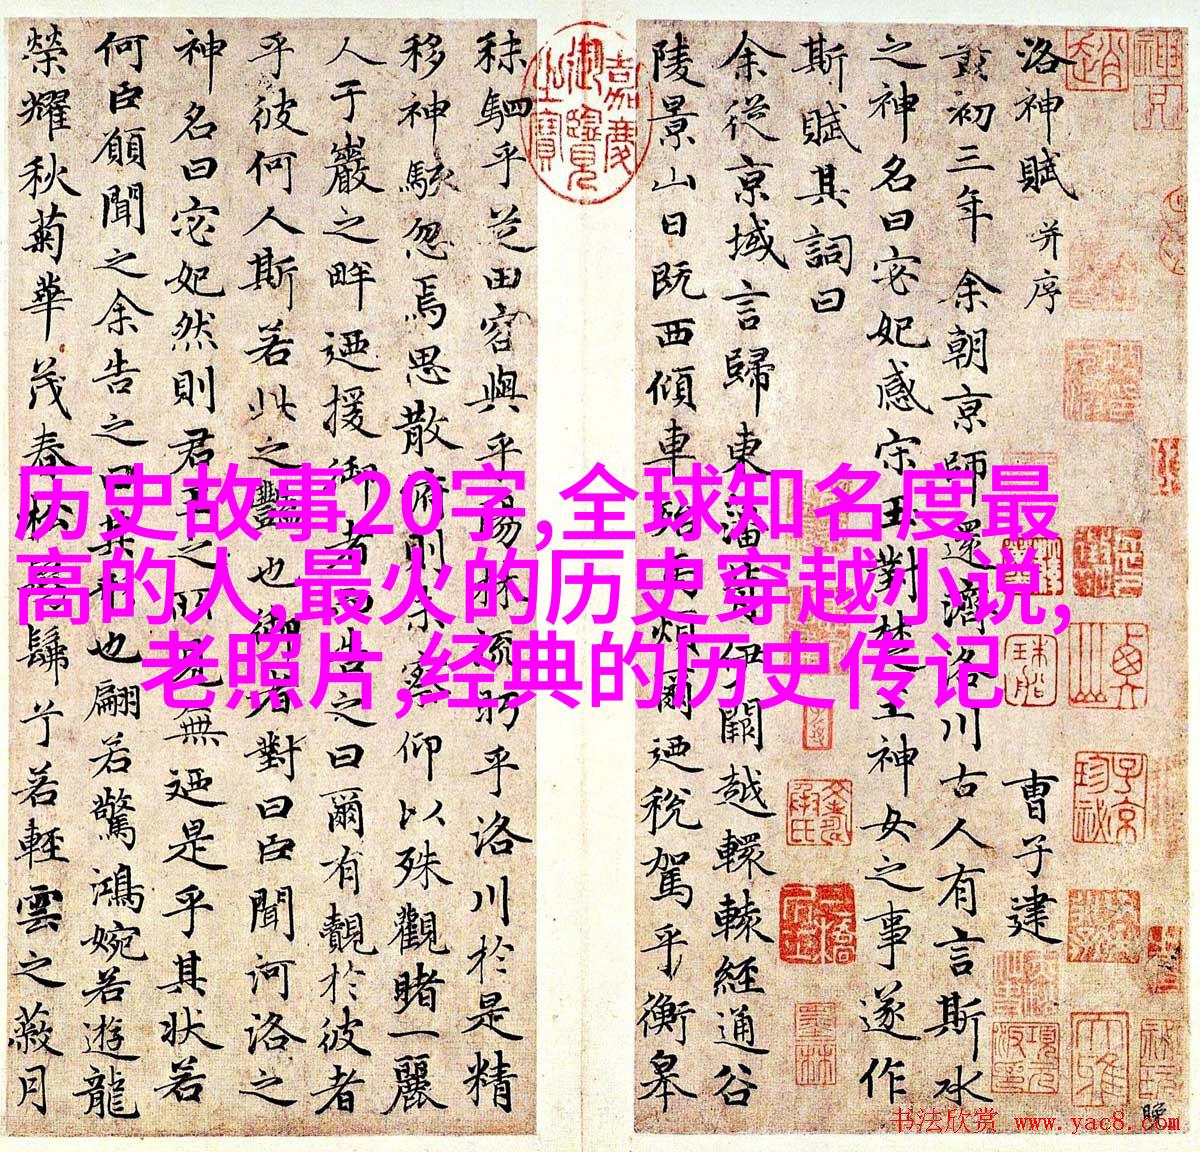 历史故事20字,全球知名度最
高的人,最火的历史穿越小说,
老照片,经典的历史传记
洛神賦 并序 曹子建
黃初三年余朝京師還濟洛川古人有言斯水
之神名曰宓妃感宋玉對楚王神女之事遂作
斯賦其詞曰
余從京域言歸東藩背伊闕越轘轅經通谷
陵景山日既西傾車殆馬煩爾迺稅駕乎衡皋
嘉慶御覽之寶
秣駟乎芝田容與乎楊林流眄乎洛川於是精
移神駭忽焉思散府則未察仰以殊觀睹一麗
人于巖之畔迺援御者而告之曰爾有覿於彼者
乎彼何人斯若此之豔也御者對曰臣聞河洛之
神名曰宓妃然則君王之所見無迺是乎其状若
何臣願聞之余告之曰其形也翩若驚鴻婉若遊龍
榮耀秋菊華茂春松髣髴兮若輕雲之蔽月
书法欣赏 www.yac8.com